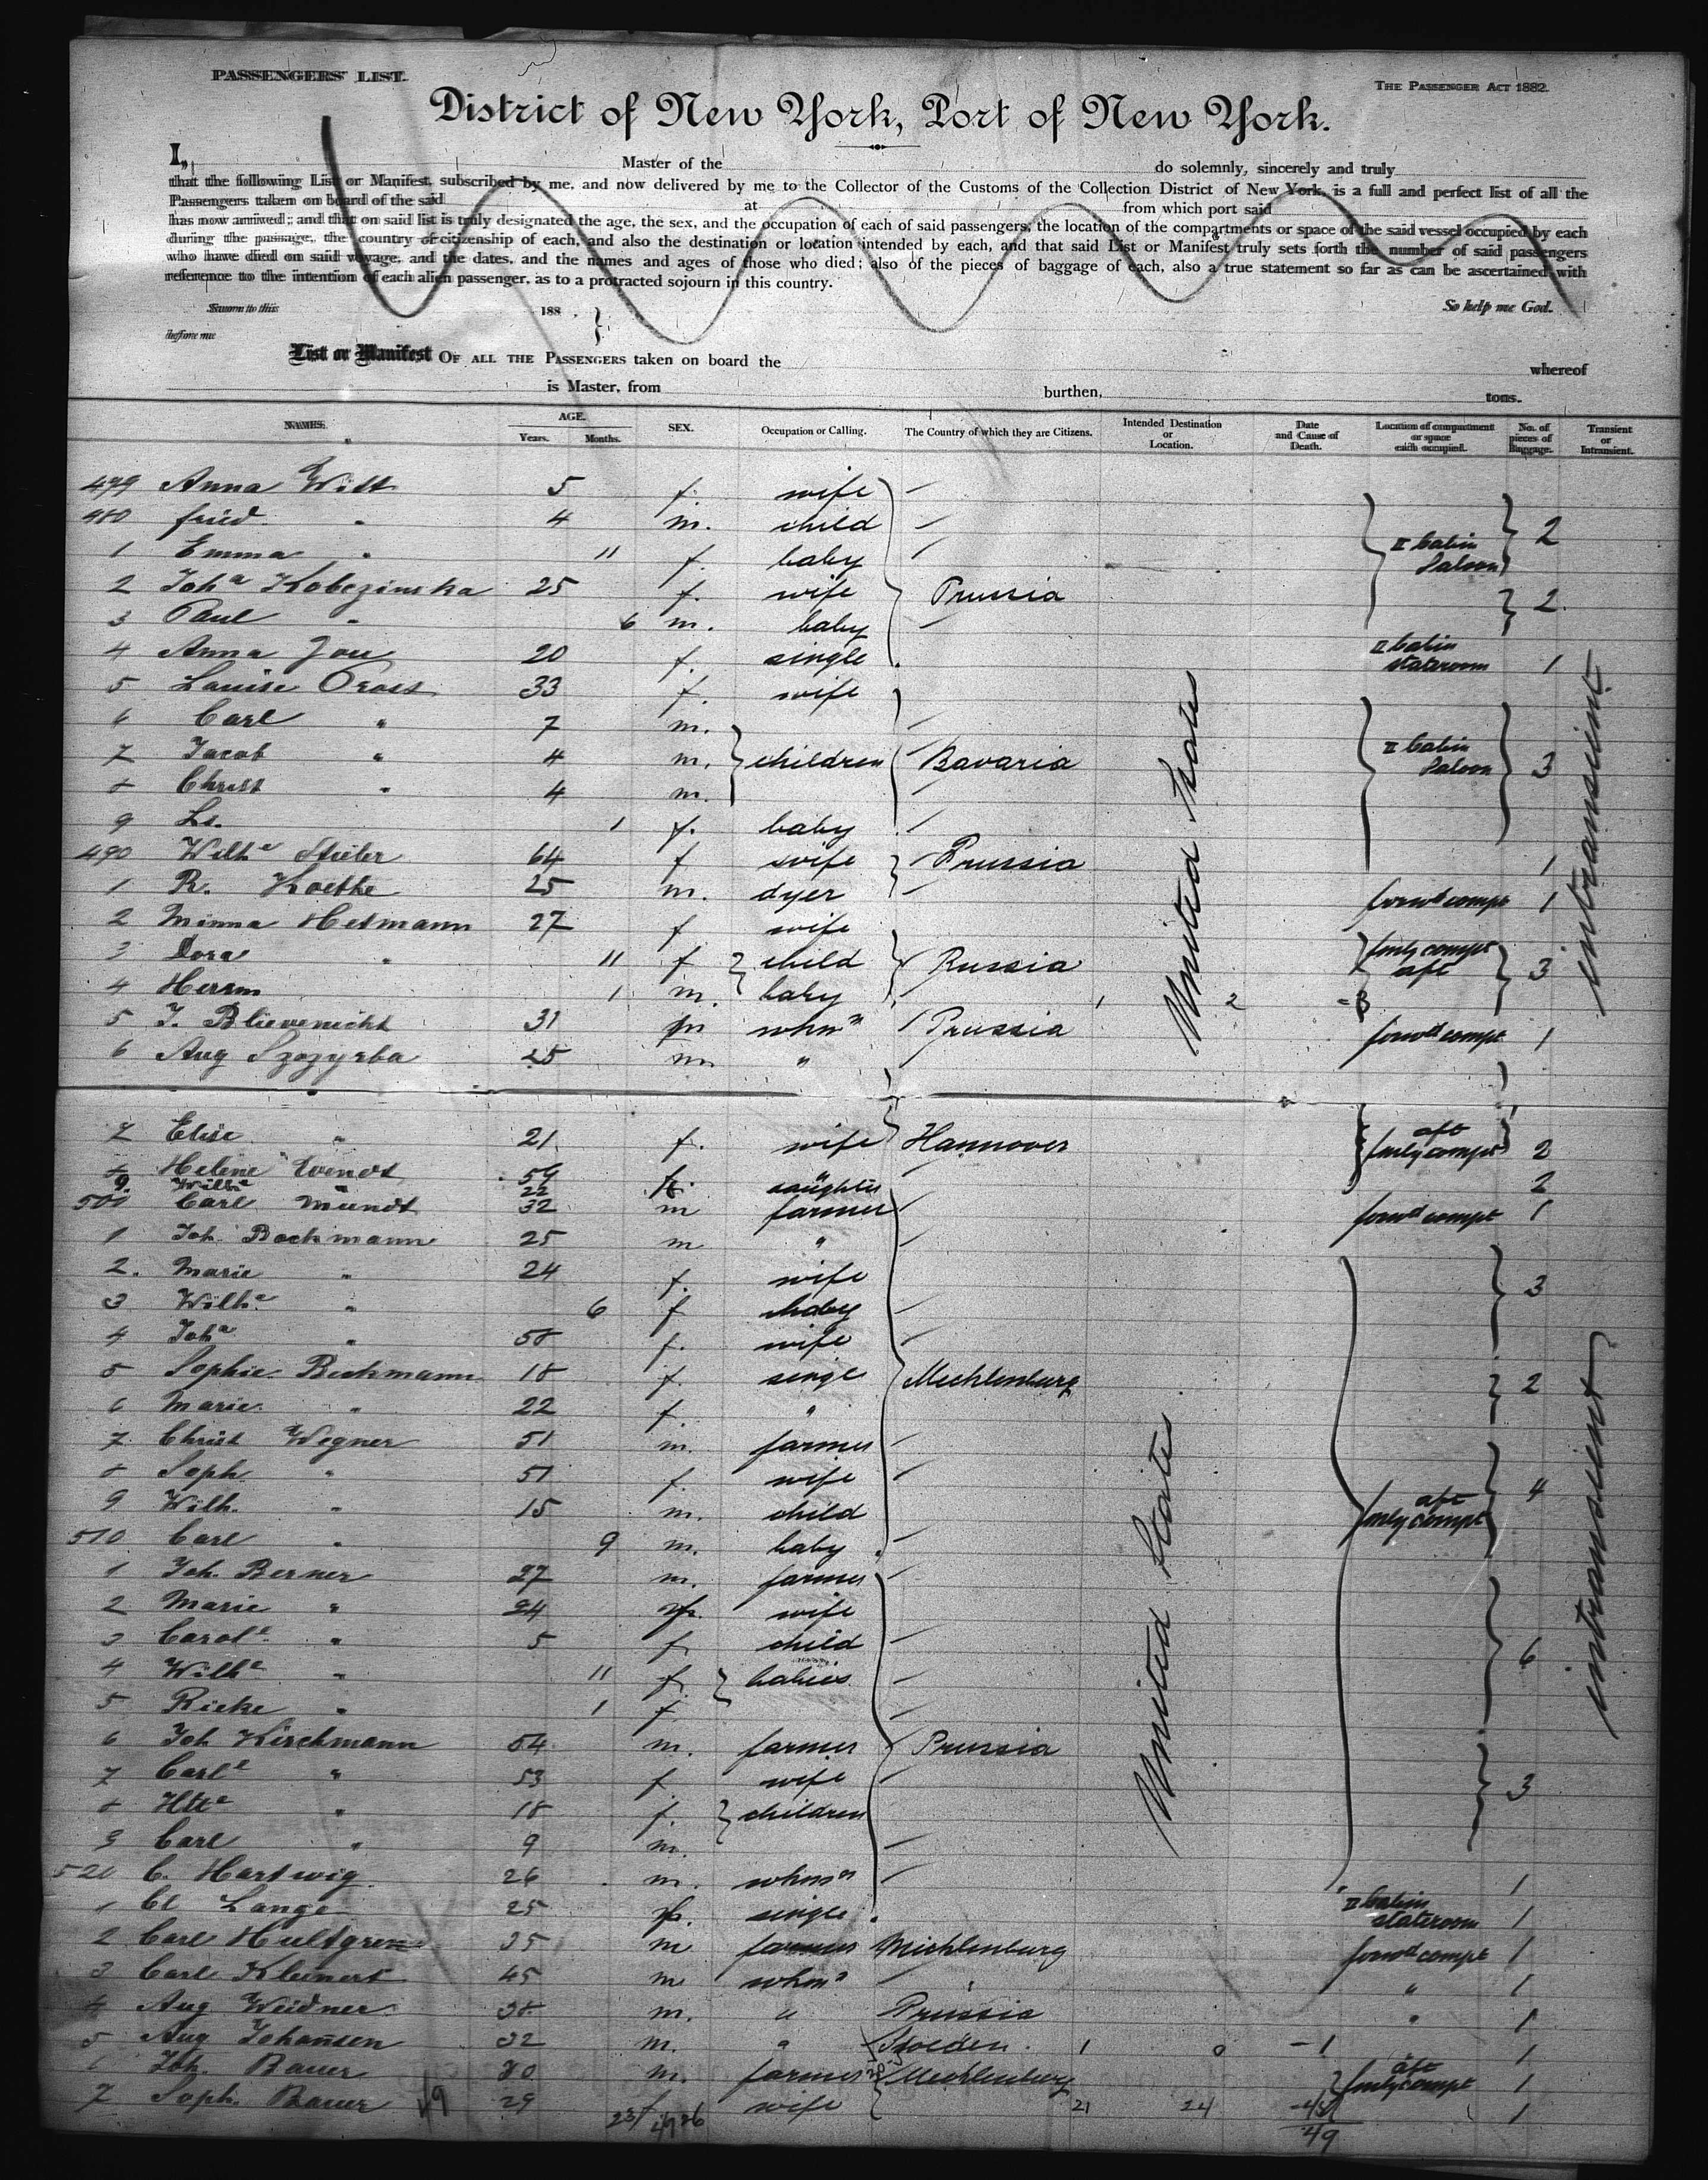 PASSENGERS' LIST.
THE PASSENGER ACT 1882.
District of New York, Port of New York.
I, Master of the do solemnly, sincerely and truly
that the following List or Manifest, subscribed by me, and now delivered by me to the Collector of the Customs of the Collection District of New York, is a full and perfect list of all the
Passengers taken on board of the said at from which port said
has now arrived; and that on said list is truly designated the age, the sex, and the occupation of each of said passengers, the location of the compartments or space of the said vessel occupied by each
during the passage, the country of citizenship of each, and also the destination or location intended by each, and that said List or Manifest truly sets forth the number of said passengers
who have died on said voyage, and the dates, and the names and ages of those who died; also of the pieces of baggage of each, also a true statement so far as can be ascertained with
reference to the intention of each alien passenger, as to a protracted sojourn in this country.
Sworn to this 188 . So help me God.
before me
List or Manifest OF ALL THE PASSENGERS taken on board the whereof
is Master, from burthen, tons.
NAMES. AGE. Years. Months. SEX. Occupation or Calling. The Country of which they are Citizens. Intended Destination or Location. Date and Cause of Death. Location of compartment or space each occupied. No. of pieces of Baggage. Transient or Intransient.
479 Anna Witt 5 f. wife
480 fried. " 4 m. child II Cabin Saloon 2
1 Emma " 11 f. baby
2 Joh^a Kobezinska 25 f. wife Prussia 2.
3 Paul " 6 m. baby
4 Anna 20 f. single II Cabin stateroom 1
5 Louise 33 f. wife
6 Carl " 7 m.
7 Jacob " 4 m. children Bavaria II Cabin Saloon 3
8 Christ " 4 m.
9 Ls. 1 f. baby
490 Wilh^e Stieler 64 f wife Prussia 1
1 R. Koethe 25 m. dyer forwd compt 1
2 Minna Hetmann 27 f wife
3 Dora " 11 f child Russia only compt aft 3
4 Herrm 1 m. baby 1 2 -3
5 J. Blievenicht 31 m whm^n Prussia forwd compt 1
6 Aug Szozyrba 25 m. "
United States
intransient
7 Elise " 21 f. wife Hannover aft only compt 2
8 Helene Wendt 59 f. " 2
9. Wilh^e " 22 daughter
500 Carl Mundt 32 m farmer forwd compt 1
1 Joh. Bockmann 25 m "
2. Marie " 24 f. wife 3
3 Wilh^e " 6 f baby
4 Joh^a " 58 f. wife
5 Sophie Beckmann 18 f. singl Mecklenburg 2
6 Marie " 22 f. "
7 Christ Wegner 51 m. farmer
8 Soph. " 51 f. wife
9 Wilh. " 15 m. child aft only compt 4
510 Carl " 9 m. baby
1 Joh. Berner 27 m. farmer
2 Marie " 24 f. wife
3 Carol^e " 5 f. child 6
4 Wilh^e " 11 f. babies
5 Rieke " 1 f
6 Joh Kirchmann 54 m. farmer Prussia
7 Carl^e " 53 f wife 3
8 " 18 f. children
9 Carl " 9 m.
520 C. Hartwig 26 m. whm^n 1
1 Cl Lange 25 f. single II Cabin stateroom 1
2 Carl Hultgren 35 m farmer Mecklenburg forwd compt 1
3 Carl Kleinert 45 m whm^n " 1
4 Aug Weidner 38 m. " Prussia " 1
5 Aug Johansen 32 m. " Sweden. 1 0 -1 1
6 Joh. Bauer 30 m. farmer Mecklenburg aft only compt 1
7 Soph. Bauer 29 f wife 21 24 -45 1
United States
intransient
49